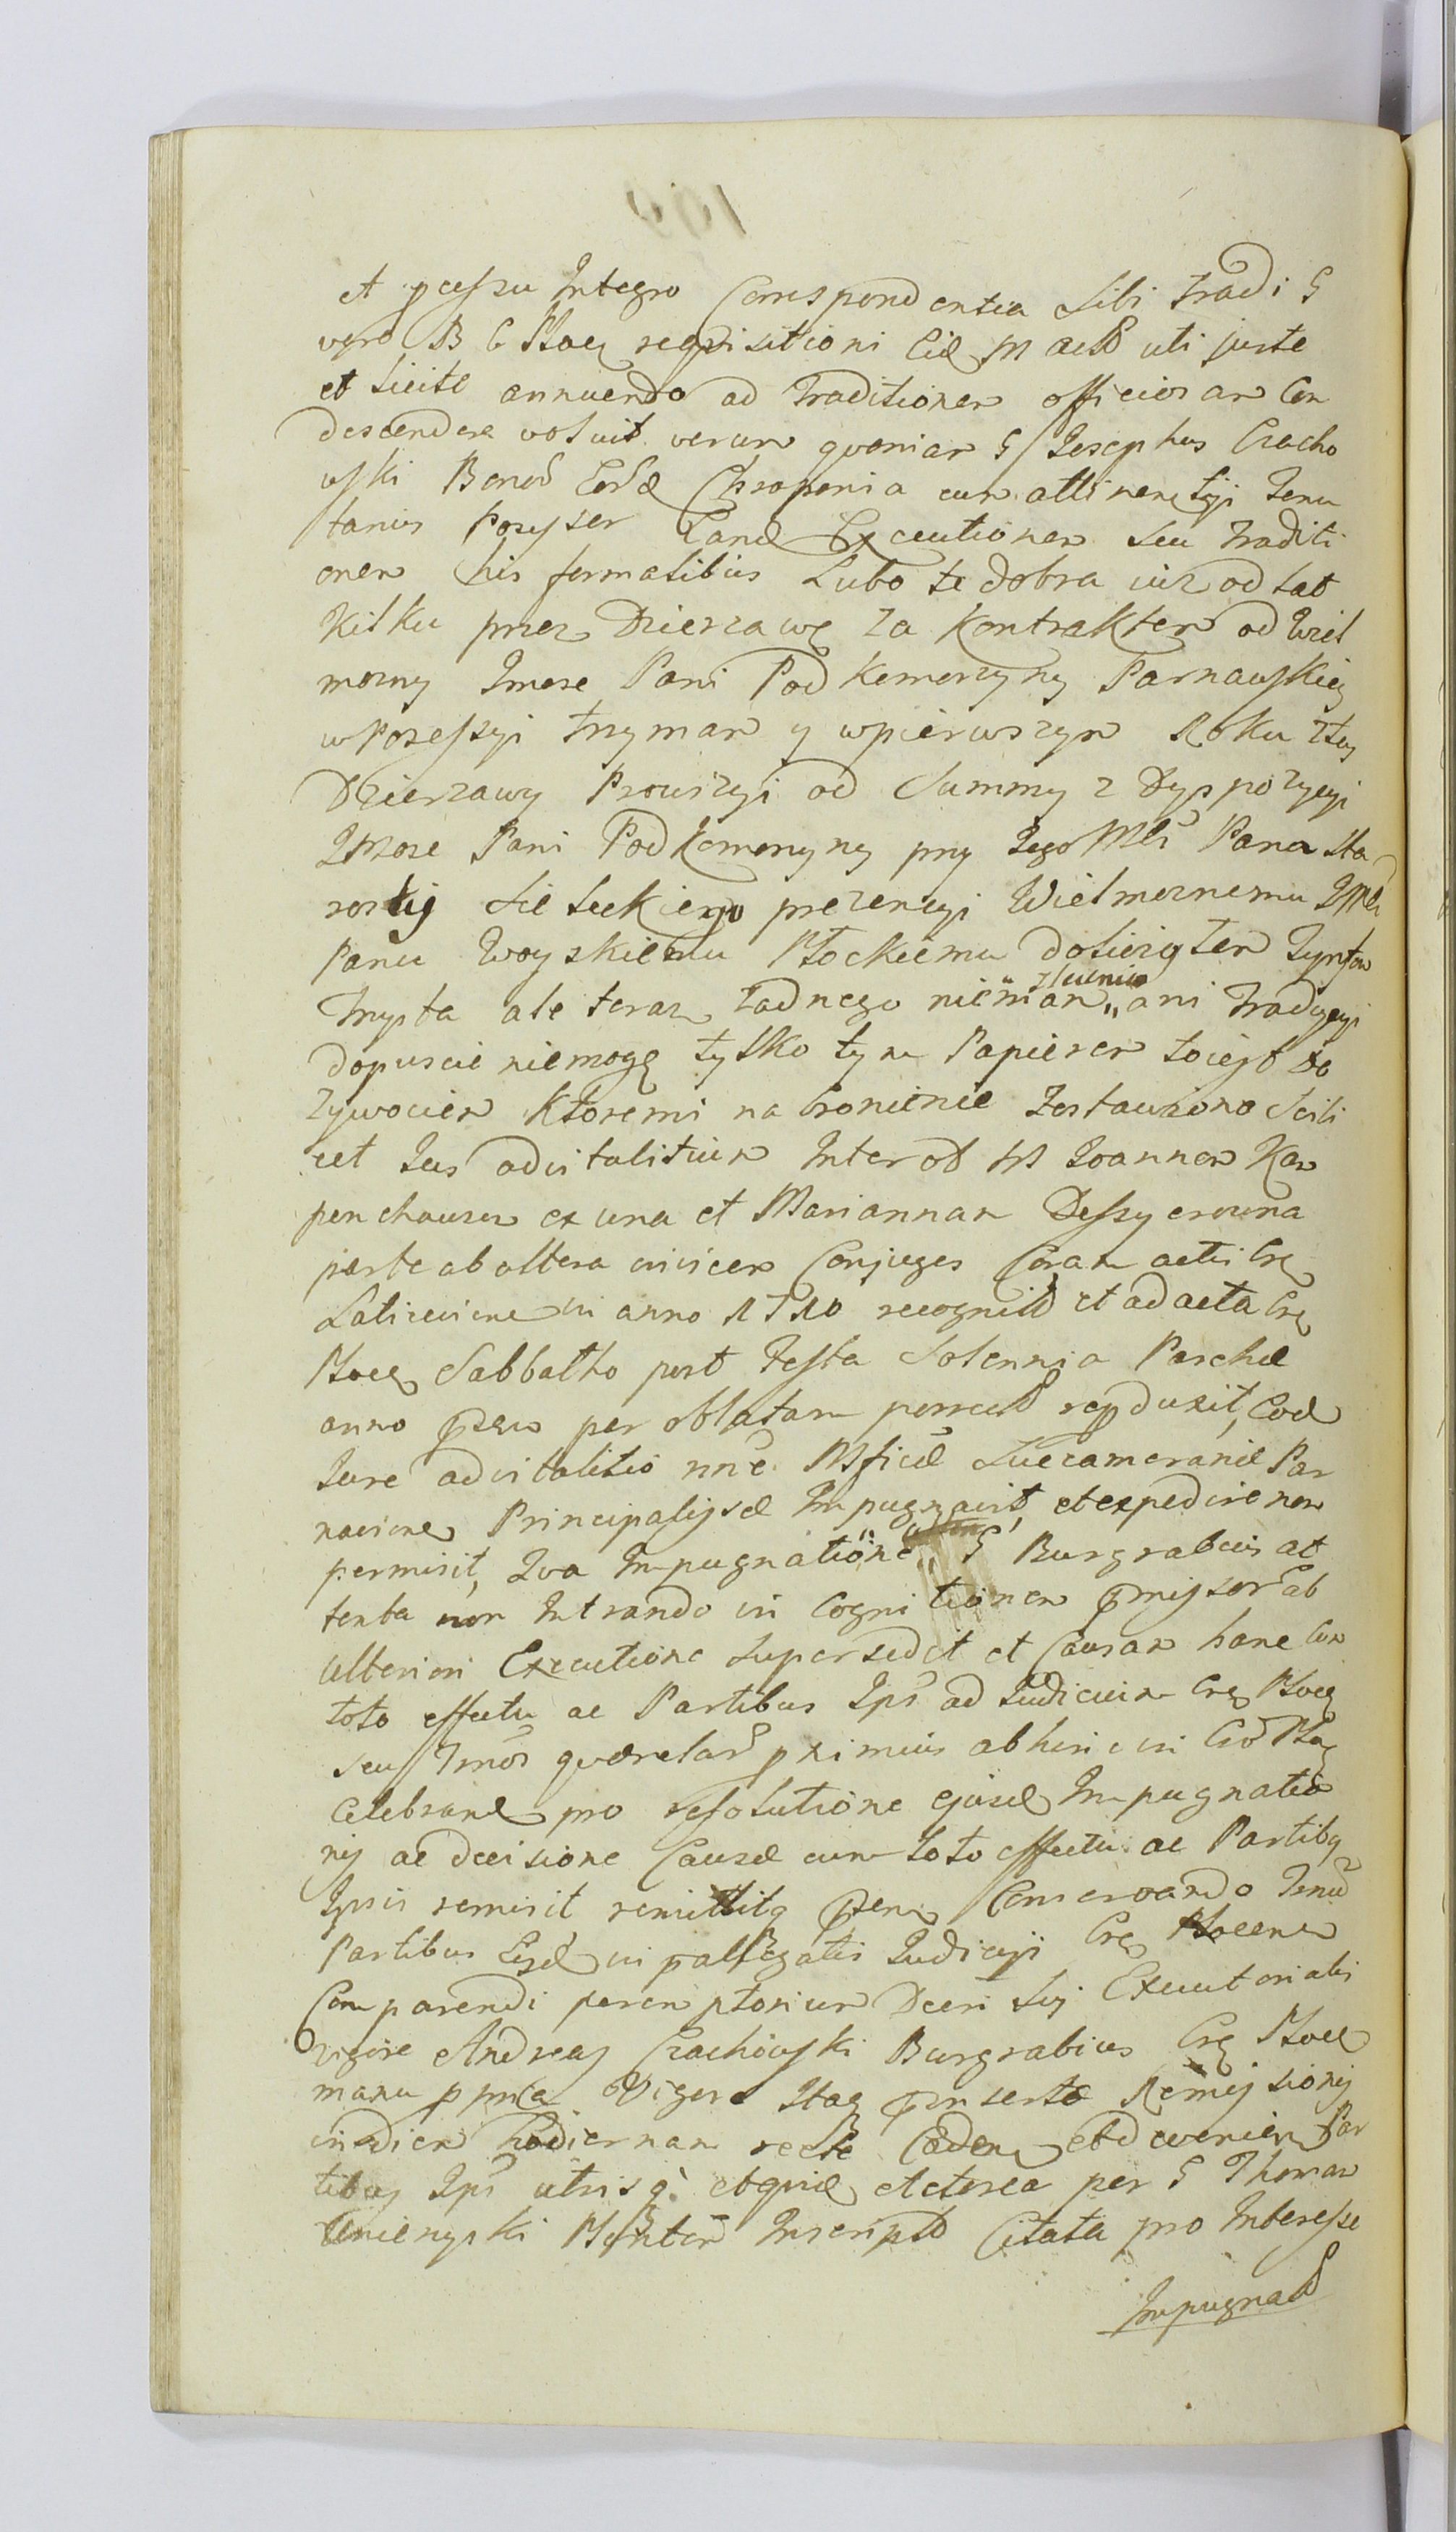 et pcessu Integro Correspondentia Sibi tradi G
vero B C Ploc requisitioni Eid M act uti juste
et licite annuendo ad Traditionem officiosam Con
descendere voluit verum quoniam G Josephus Czacho
wski Bonor Eord Chroponia cum attinentiji Tenu
tarius Posessor Eand Executionem seu Traditi
onem his formalibus Lubo te dobra iuz od lat
kilku przez Dzierzawę za Kontraktem od Wiel
mozny Imose Pani Podkomorzyny Parnawskiey
w Posessyi trzymam y w pierwszym Roku tey
Dzierzawy Prowizyi od Summy z Dyspozycyi
Imose Pani Podkomorzyny przy Jego Mci Pana Sta
rosty prezencyi Wielmoznemu JMci
Panu Woyskiemu Płockiemu Tynfow
Trzysta ale teraz zadnego niemam „ zlecenia ani Tradycyi
dopuscic niemogę tylko tym Papierem to iest Do
zywociem ktoremi na bronienie zostawiono Scili
cet Jus advitalitium Inter M Joannem Kam
penchauzen ex una et Mariannam
parte ab altera invicem Conjuges Coram actis Crg
in anno 1710 recognit et ad acta Crg
Ploc Sabbatho post Festa Solennia Paschæ
anno psen per oblatam porrect repduxit, Eod
Jure advitalitio nne Mficæ Succameranæ Par
navien Principalisæ Impugnavit, et expedire non
permisit, Qva Impugnatione „ G Burgrabius at
tenta non Intrando in Cognitionem pmissor ab
ulteriori Executione supersedit et Causam hanc Cum
toto effectu ac Partibus Ips ad Judicium Crg Ploc
seu Tmor querelar pximius abhinc in Cro Ploc
celebrand pro resolutione ejusd Impugnatio
nis ac decisione Causæ cum toto effectu ac Partibq
Ipsis remisit remittitq psen Conservando Tmu
Partibus Eisd in pallegatis Judicijs Crg Plocen
Comparendi peremptorium Decreti sui Executorialis
vigore Andreas Czachowski Burgrabius Crg Ploc
manu ppria Vigore Itaq pinsertæ Remissionis
in diem hodiernam recte Caden et devenien Par
tibus Ips utrisq. et quid etcetera per G Thomam
Inscript Citata pro Interesse
Impugnat